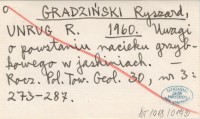 GRADZIŃSKI Ryszard,
UNRUG R. 1960. Uwagi
o powstaniu nacieku grzyb-
kowego w jaskiniach. —
Rocz. Pol. Tow. Geol. 30, nr 3:
273-287.